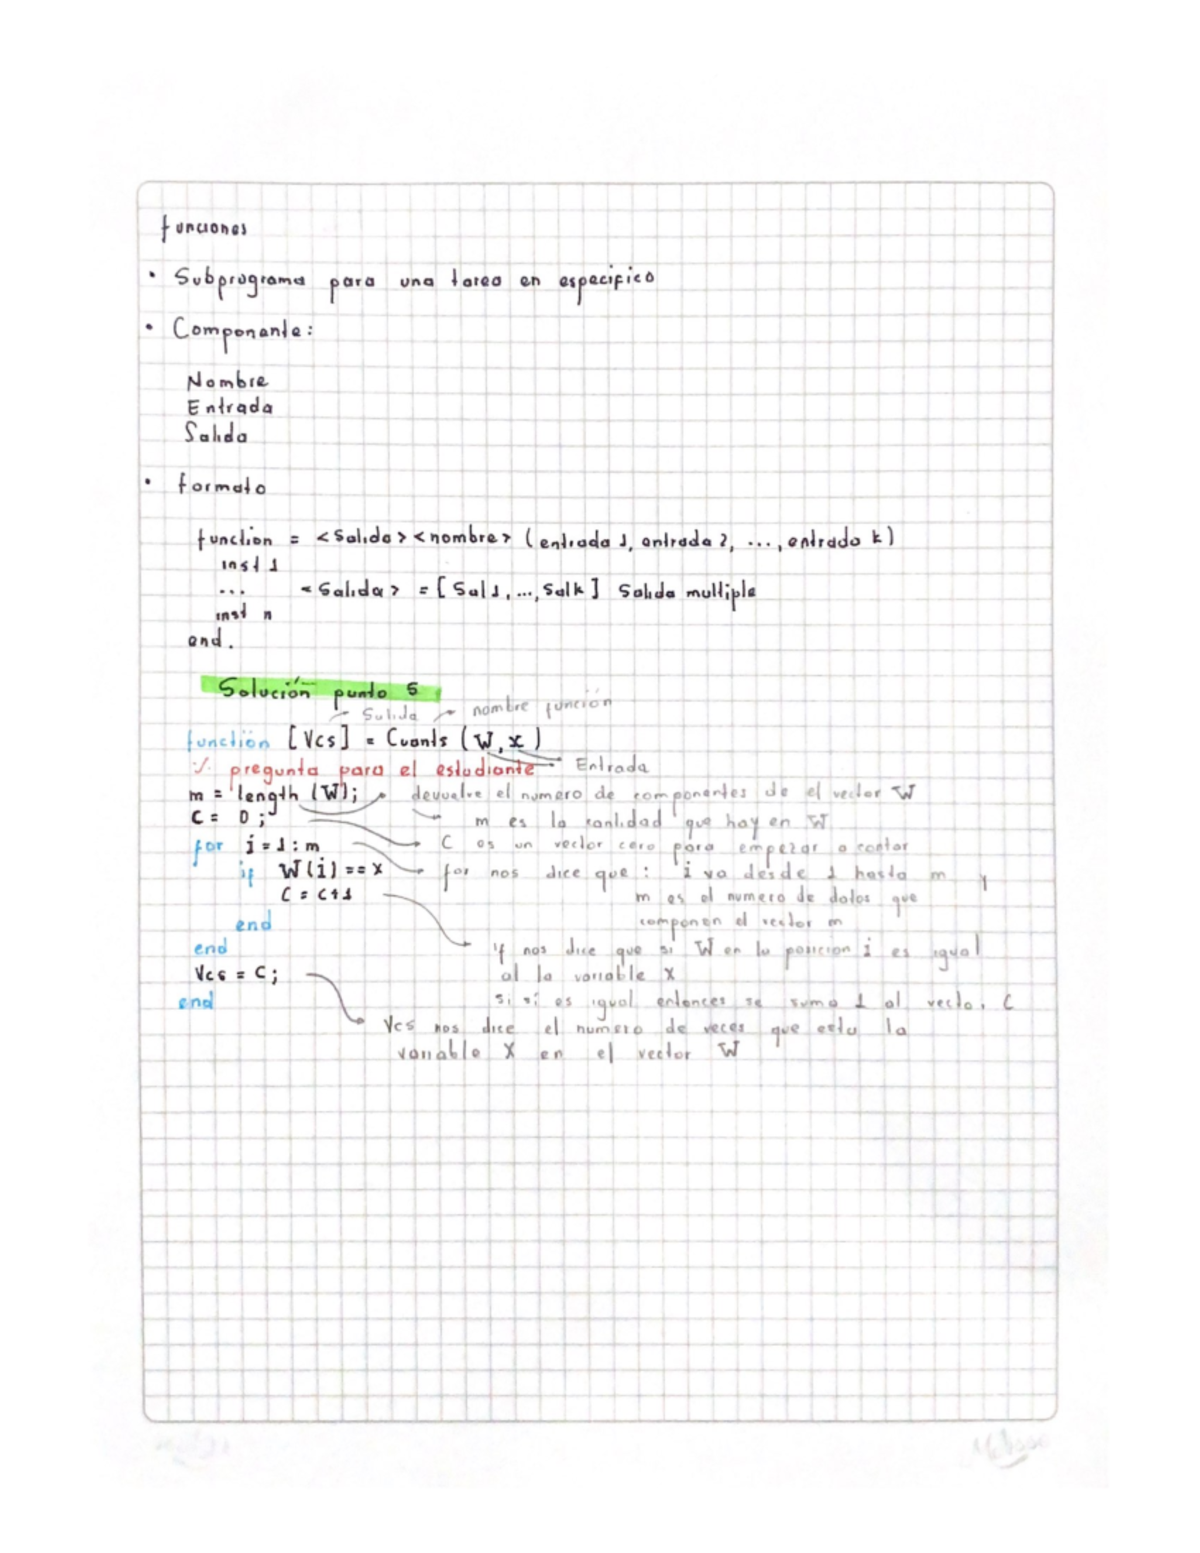 funciones
• Subprograma para una tarea en especifico
• Componente:
Nombre
Entrada
Salida
• formato
function = <Salida> <nombre> (entrada 1, entrada 2, ..., entrada k)
inst 1
... <Salida> = [Sal1, ..., Salk] Salida multiple
inst n
end.
Solución punto 5
Salida nombre función
function [Vcs] = Cuants (W, x)
Entrada
% pregunta para el estudiante
m = length (W); devuelve el numero de componentes de el vector W
m es la cantidad que hay en W
C = 0;
C es un vector cero para empezar a contar
for i = 1 : m
if W(i) == X
for nos dice que : i va desde 1 hasta m y
C = C+1
m es el numero de datos que
componen el vector m
end
end
if nos dice que si W en la posicion i es igual
al la variable X
Vcs = C;
si si es igual entonces se suma 1 al vector C
end
Vcs nos dice el numero de veces que esta la
variable X en el vector W